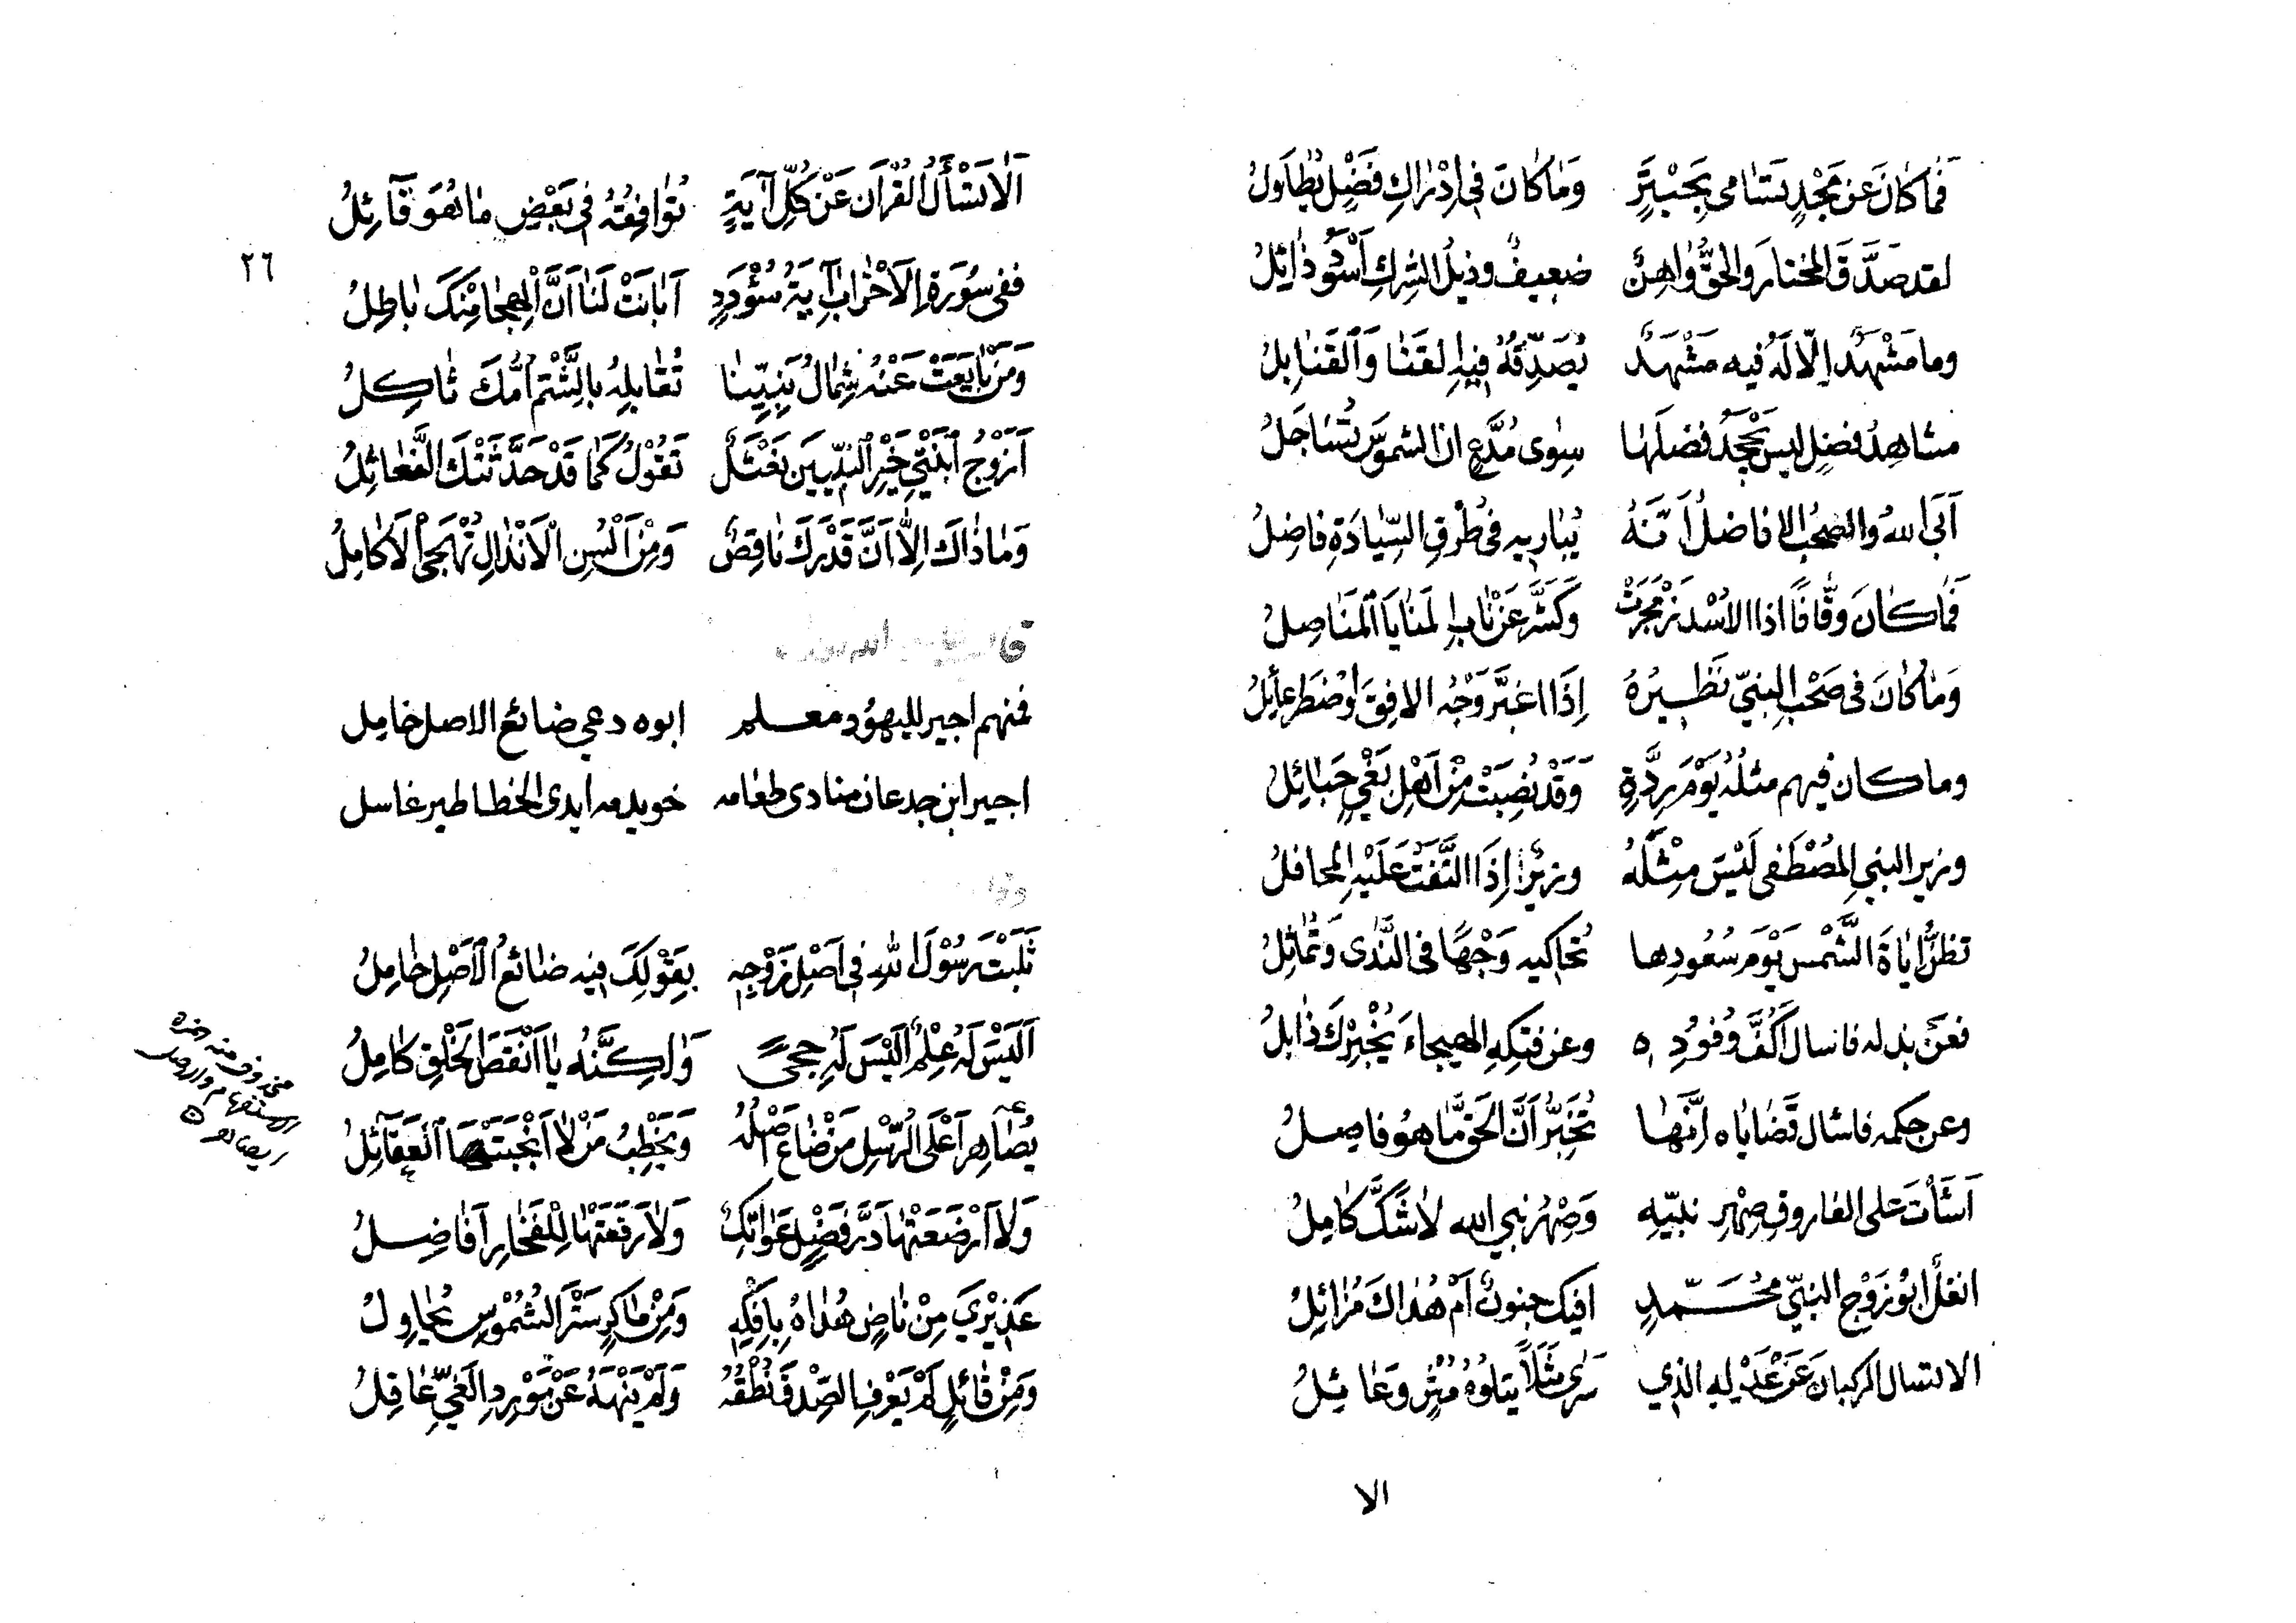 فَمَا كَانَ عَن مَجْدٍ تَسَامى بِجَيْدَرٍ وَمَا كَانَ فِي اِدْرَاكِ فَضْلٍ يُطَاوَلُ
لقد صَدَّقَ المختارَ والحَقُّ وَاهِنٌ ضعيفٌ وذيلُ الشركِ اَسْوَدُ ذَائِلُ
وما مَشْهَدٌ اِلّا لَهُ فيه مَشْهَدٌ يُصَدِّقُهُ فِيهِ القَنَا وَالقَنَابِلُ
مشاهدُ فضلٍ ليس يَجْحَدُ فضلَهَا سِوى مُدَّعٍ ان الشموسَ تُسَاجَلُ
اَبَى اللهُ والصحبُ الافاضلُ اَنَّهُ يُبَارِيهِ فى طُرْقِ السِّيَادَةِ فاضِلُ
فَمَا كَانَ وَقَّافًا اذا الاُسْدُ زَمْجَرَتْ وَكَشَّرَ عَنْ نَابِ المَنَايَا المَنَاصِلُ
وَمَا كَانَ فى صَحْبِ النبيّ نَظِيرُهُ اِذَا اغبَرَّ وَجْهُ الافق
وما كان فيهم مثلُهُ يَوْمَ رِدَّةٍ وَقَدْ نُصِبَتْ مِنْ اَهْلِ بَغْيٍ حَبَائِلُ
وزير النبي المُصْطَفى لَيْسَ مِثْلَهُ وزيرٌ اِذَا الْتَفَّتْ عَلَيْهِ المحافلُ
تظنُّ اِيَاةَ الشَّمْسِ يَوْمَ سُعُودِها تُحاكيه وَجْهًا فى النَّدى وَتُمَاثِلُ
فعَنْ بذله فاسال اَكُفَّ وُفُودِهِ وعن فتكهِ الهيجاءَ يُخْبِرْكَ ذَابِلُ
وعن حكمه فاسال قَضَايَاه اِنَّهَا تُخَبِّرُ اَنَّ الحَقَّ مَا هُو فاصِلُ
اَسَأْتَ عَلى الفاروقِ صِهْرِ نبيّهِ وَصْهرُ نبي الله لاشَكَّ كَامِلُ
انغلٌ ابُو زَوْجِ النبيّ مُحَمَّدٍ افيك جنونٌ اَمْ هُذَاكَ مُزَائِلُ
الا تسال الركبانَ عَنْ عَدْلِهِ الذي سَرَى مَثَلًا يتلوهُ مُثْرٍ وَعَائِلُ
الا
اَلَا تَسْأَلُ القُرْآنَ عَنْ كُلِّ آيَةٍ تُوَافِقُهُ فِى بَعْضِ مَا هُوَ قَائِلُ
٢٦
ففى سُورَةِ الاَحْزَابِ آيَةُ سُؤْدَدٍ اَبَانَتْ لَنَا اَنَّ الْهِجَا مِنْكَ بَاطِلُ
وَمَنْ بَايَعَتْ عَنْهُ شِمَالُ نَبِيِّنَا تُقَابِلُهُ بِالشَّتْمِ اُمُّكَ ثَاكِلُ
اَزَوْجُ ابْنَتَيْ خَيْرِ النبِيّينَ نَعْثَلٌ تَقُوْلُ كَمَا قَدْ حَدَّثَتْكَ الفَعَائِلُ
وَمَا ذَاكَ اِلَّا اَنَّ قَدْرَكَ نَاقِصٌ وَمِنْ اَلْسُنِ الْاَنْذَالِ تُهْجَى الْاَكَامِلُ
فمنهم اجير لليهود معلم ابوه دعي ضائع الاصل خامل
اجير ابن جدعان منادى طعامه خويدمه ايدى الخطاطير غاسل
ثَلَبْتَ رَسُوْلَ اللهِ فِى اَصْلِ زَوْجِهِ بِقَوْلِكَ فِيهِ ضَائعُ الْاَصْلِ خَامِلُ
اَلَيْسَ لَهُ عِلْمٌ اَلَيْسَ لَهُ حِجىً وَلكِنَّهُ يَا اَنْقَصَ الخَلْقِ كَامِلُ
يُصَاهِرُ اَعْلَى الرُّسْلِ مَنْ ضَاعَ اَصْلُهُ وَيَخْطِبُ مَنْ لَا اَنْجَبَتْهَا العَقَائِلُ
وَلَا اَرْضَعَتْهَا دَرَّ فَضْلٍ عَوَاتِكٌ وَلَا رَفَعَتْهَا لِلْفَخَارِ اَفَاضِلُ
عَذِيْرِيَ مِنْ نَاضٍ هُدَاهُ بِاِفْكِهِ وَمِنْ مَاكِرٍ سَتْرَ الشُمُوْسِ يُحَاوِلُ
وَمِنْ قَائِلٍ لَمْ يَعْرِفِ الصِّدْقَ نُطْقُهُ وَلَمْ يَنْهَهُ عَنْ مَوْرِدِ الغَيِّ عَاقِلُ
محذوف منه همزة
الاستفهام